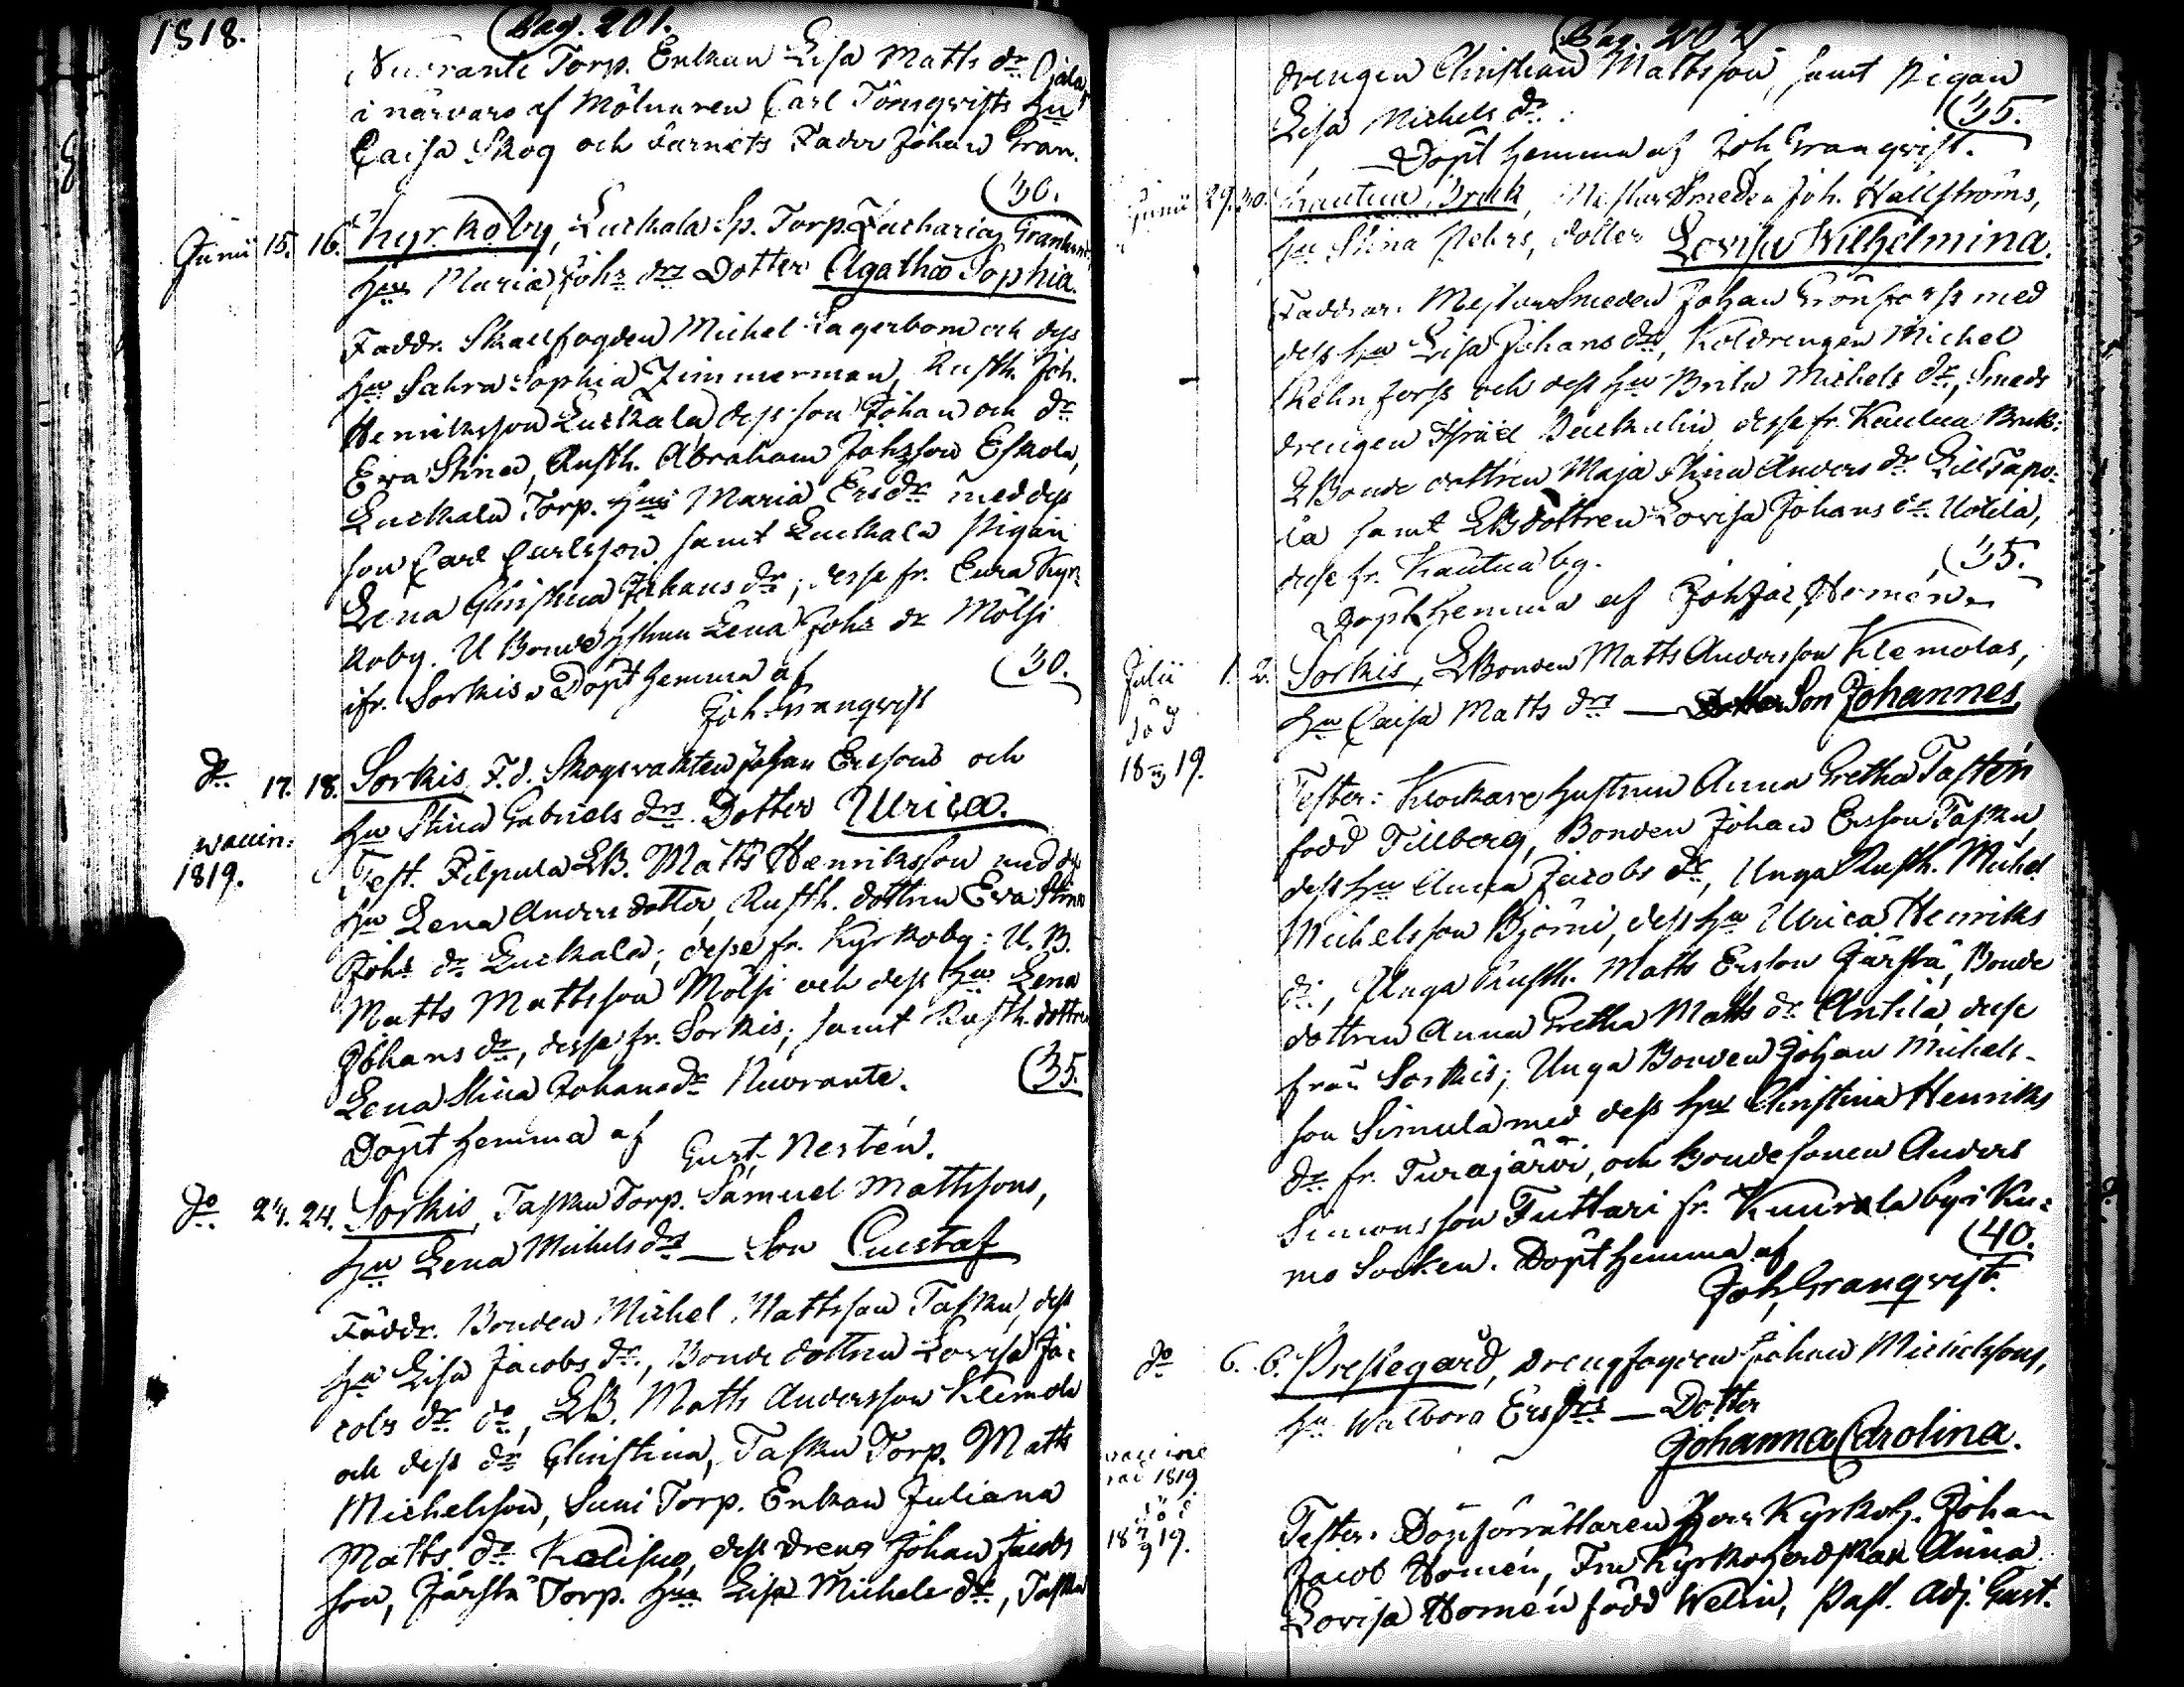 1818. Pag. 201.
Nuorante Torp. Enkan Lisa Matts dr
i närvaro af Mölnaren Carl Törnqvists hu
Caisa Skog och barnets Fader Johan Gran.
(30.
Junii 15. 16. Kyrkoby, Luckala Sp. Torp. Zacharias Granlunds
hus Maria Johs drs Dotter Agatha Sophia.
Faddr. Skallfogden Michel Lagerbom och dess
hu Sahra Sophia Zimmerman, Rusth. Joh.
Henriksson Luckala dess son Johan och dr
Eva Stina, Rusth. Abraham Johsson Eskola,
Luckala Torp. hus Maria Ers dr med dess
son Carl Carlsson samt Luckala Pigan
Lena Christina Johans dr; desse fr. Eura Kyr-
koby. U Bonde hustrun Lena Johs dr Mölsi
ifr. Sorkis. Döpt hemma af (30.
Joh. Granqvist
do 17. 18. Sorkis, F.d. Skogsvakten Johan Erssons och
hu Stina Gabriels drs Dotter Ulrica.
vaccin:
1819.
Test. Filpula LB. Matts Henriksson med dess
hu Lena Anders dotter, Rusth. dottren Eva Stina
Johs dr Luckala; desse fr. Kyrkoby: U. B.
Matts Mattsson Mölsi och dess hu Lena
Johans dr, desse fr. Sorkis; samt Rusth. dottren
Lena Stina Johans dr Nuorante. (35.
Döpt hemma af Gust. Nestén.
do 24. 24. Sorkis, Tasku Torp. Samuel Mattssons,
hu Lena Michels drs — Son Gustaf
Faddr. Bonden Michel Mattsson Tasku, dess
hu Lisa Jacobs dr., Bonde dottren Lovisa Ja-
cobs dr do, LB. Matts Andersson Klemola
och dess dr Christina, Tasku Torp. Matts
Michelsson, Suni Torp. Enkan Juliana
Matts dr, dess dreng Johan Jacobs
son, Järstä Torp. hus Lisa Michels dr, Tasku
Pag. 202
drengen Christian Mattsson, samt Pigan
Lisa Michels dr. (35.
Döpt hemma af Joh. Granqvist.
Junii 29. 30. Kautua Bruk, MästarSmeden Joh. Hallströms,
hu Stina Pehrs, dotter Lovisa Wilhelmina.
Faddrar. MästarSmeden Johan Grönforss med
dess hu Lisa Johans dr, Koldrengen Michel
Rehnforss och dess hu Brita Michels dr, Smeds
drengen Isräel Backalin desse fr. Kautua Bruk:
LBonde dottren Maja Stina Anders dr LillTapo-
la samt LBdottren Lovisa Johans dr Uotila,
desse fr. Kautua by. (35.
Döpt hemma af Joh Jac. Homén.
Julii 1. 2. Sorkis, LBonden Matts Andersson Klemolas,
död
18 19.
hu Caisa Matts drs — Son Johannes.
Tester: Klockare hustrun Anna Gretha Tastén
född Tillberg, Bonden Johan Ersson Tasku,
dess hu Anna Jacobs dr, Unga Rusth. Michel
Michelsson Björni, dess hu Ulrica Henriks
dr, Unga Rusth. Matts Ersson Järstä, Bonde
dottren Anna Gretha Matts dr Antila, desse
från Sorkis; Unga Bonden Johan Michels-
son Simula med dess hu Christina Henriks
dr fr. Turajärvi, och Bondesonen Anders
Simonsson Tuttari fr. by i Kiu-
mo Socken. Döpt hemma af (40.
Joh. Granqvist.
do 6. 6. Prestegård, Drengfogden Johan Michelssons,
hu Walbora Ers drs — Dotter
Johanna Carolina.
1819
död
18 19.
Tester. Döpförrättaren Herr Kyrkoh. Johan
Jacob Homén, Fru Kyrkoherdskan Anna
Lovisa Homén född Welin, Past. Adj. Gust.